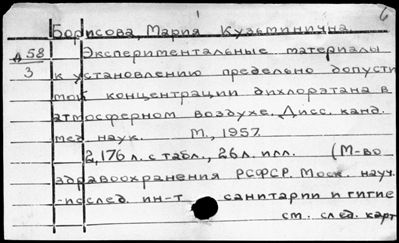 Борисова, Мария Кузьминична
д 58 Экспериментальные материалы
3 к установлению предельно допусти
мой концентрации дихлорэтана в
атмосферном воздухе. Дисс. канд.
мед. наук. М., 1957.
2,176 л. с табл., 26 л. илл. (М-во
здравоохранения РСФСР. Моск. науч.
-послед. ин-т санитарии и гигие
см. след. карт